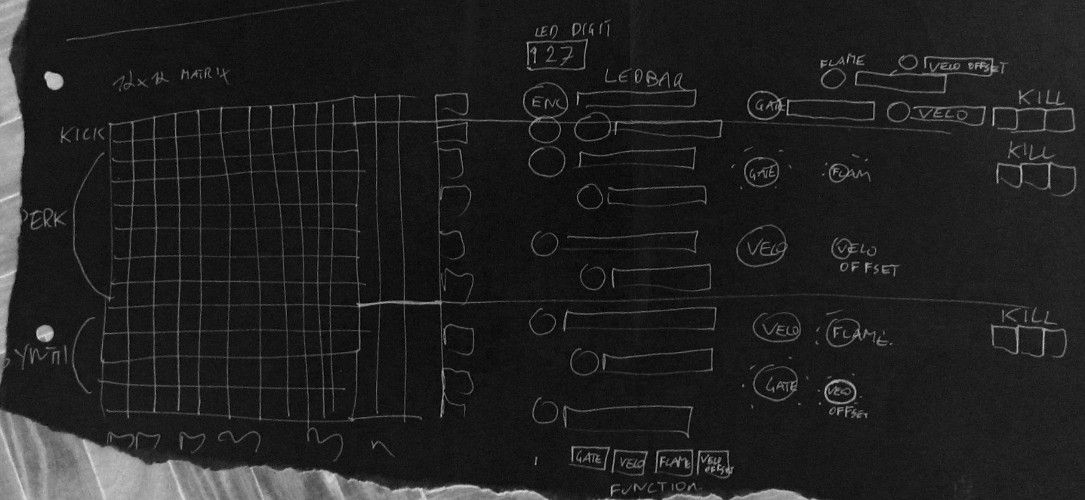 LED DIGIT
127
12x12 MATRIX
LEDBAR
FLAME
VELO OFFSET
ENC
GATE
VELO
KILL
KICK
KILL
GATE
FLAM
PERK
VELO
VELO
OFFSET
KILL
VELO
FLAME
SYNTH
GATE
VELO
OFFSET
GATE
VELO
FLAME
VELO
OFFSET
FUNCTION